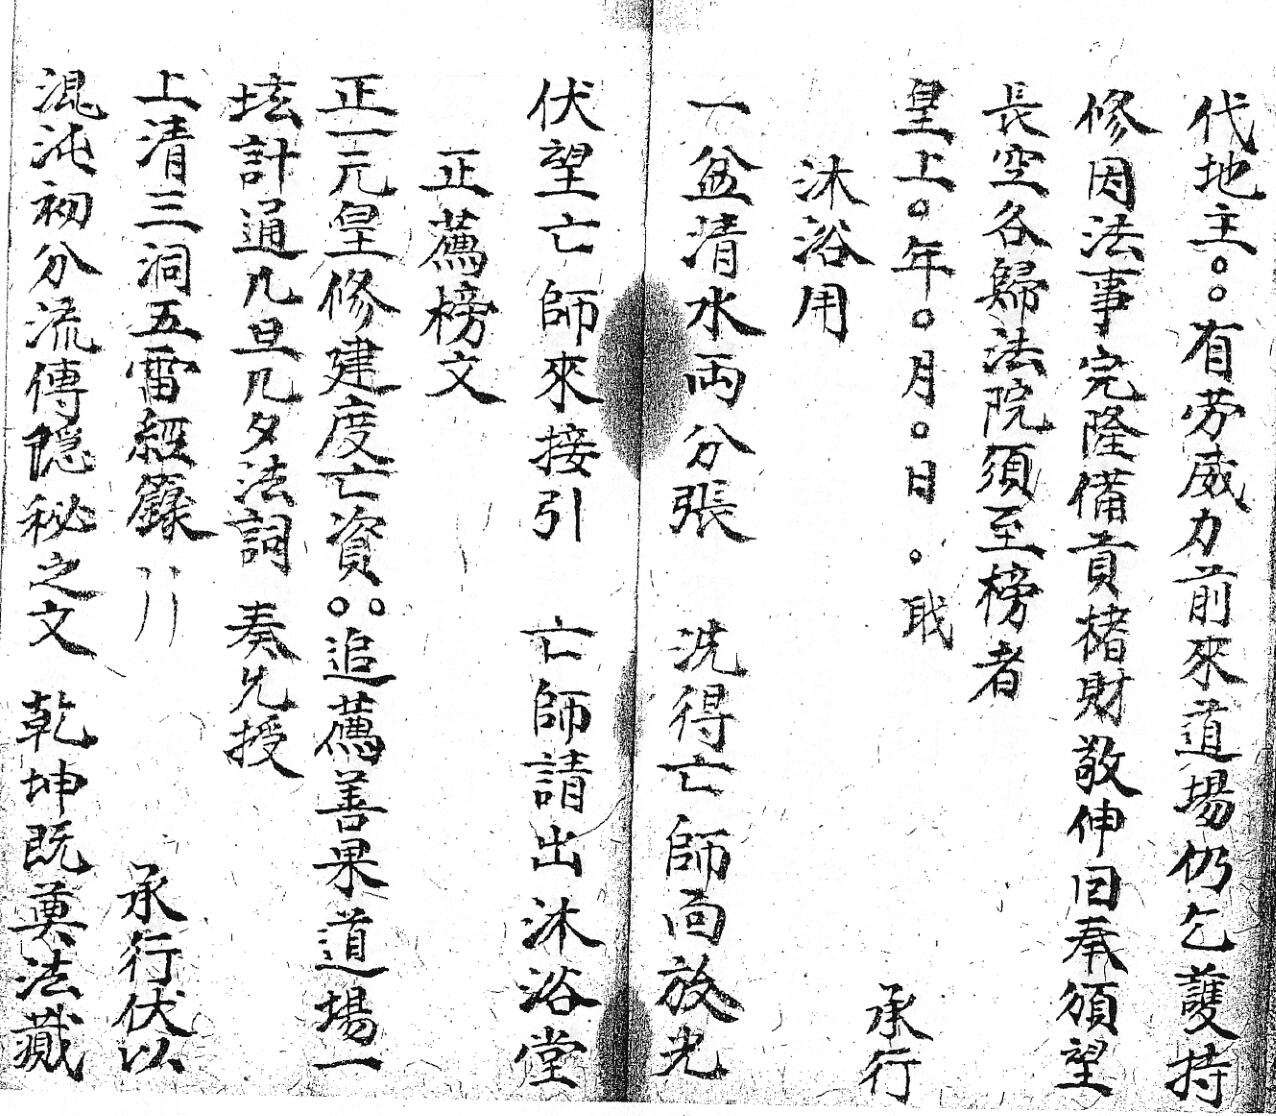 代地主○○有劳威力前來道場仍乞護持
修因法事完隆備貢楮財敬伸回奉頒望
長空各歸法院須至榜者
皇上○年○月○日○戢 承行
沐浴用
一盆清水両分張 洗得亡師面放光
伏望亡師來接引 亡師請出沐浴堂
正薦榜文
正一元皇修建度亡資○○追薦善果道場一
坛計通几旦几夕法詞 奏先授
上清三洞五雷經籙 承行伏以
混沌初分流傳隠秘之文 乾坤既奠法藏